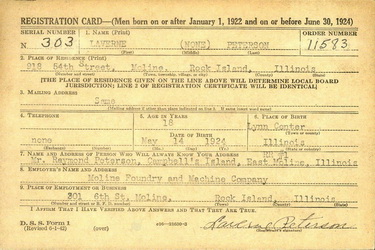 REGISTRATION CARD—(Men born on or after January 1, 1922 and on or before June 30, 1924)
SERIAL NUMBER 1. NAME (Print) ORDER NUMBER
N 303 LAVERNE (NONE) PETERSON 11583
(First) (Middle) (Last)
2. PLACE OF RESIDENCE (Print)
918 54th Street, Moline, Rock Island, Illinois
(Number and street) (Town, township, village, or city) (County) (State)
[THE PLACE OF RESIDENCE GIVEN ON THE LINE ABOVE WILL DETERMINE LOCAL BOARD
JURISDICTION; LINE 2 OF REGISTRATION CERTIFICATE WILL BE IDENTICAL]
3. MAILING ADDRESS
Same
4. TELEPHONE 5. AGE IN YEARS 6. PLACE OF BIRTH
18 Lynn Center
DATE OF BIRTH
none May 14 1924 Illinois
7. NAME AND ADDRESS OF PERSON WHO WILL ALWAYS KNOW YOUR ADDRESS
Mr. Raymond Peterson, Campbell's Island, East Moline, Illinois
8. EMPLOYER'S NAME AND ADDRESS
Moline Foundry and Machine Company
9. PLACE OF EMPLOYMENT OR BUSINESS
301 6th St. Moline, Rock Island, Illinois
I AFFIRM THAT I HAVE VERIFIED ABOVE ANSWERS AND THAT THEY ARE TRUE.
D. S. S. Form 1
(Revised 6-1-42) (over)
Laverne Peterson